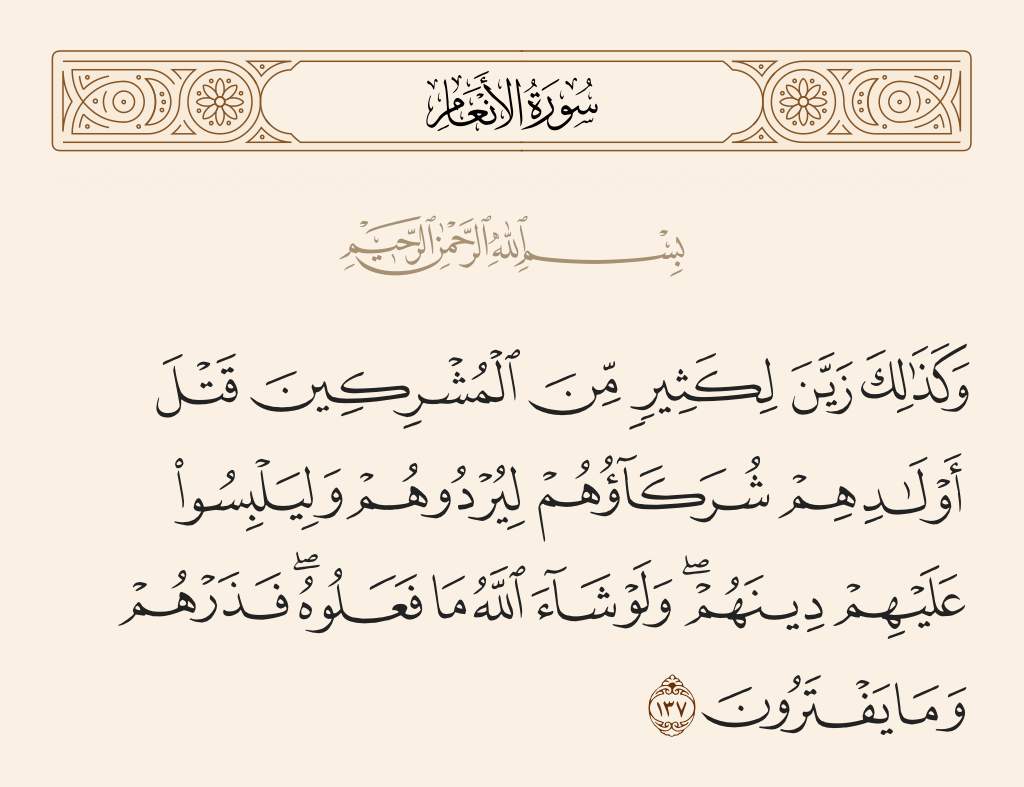 سُورَةُ الأَنْعَامِ
بِسْمِ ٱللَّهِ ٱلرَّحْمَٰنِ ٱلرَّحِيمِ
وَكَذَٰلِكَ زَيَّنَ لِكَثِيرٍ مِّنَ ٱلْمُشْرِكِينَ قَتْلَ
أَوْلَـٰدِهِمْ شُرَكَآؤُهُمْ لِيُرْدُوهُمْ وَلِيَلْبِسُوا۟
عَلَيْهِمْ دِينَهُمْ ۖ وَلَوْ شَآءَ ٱللَّهُ مَا فَعَلُوهُ ۖ فَذَرْهُمْ
وَمَا يَفْتَرُونَ ١٣٧